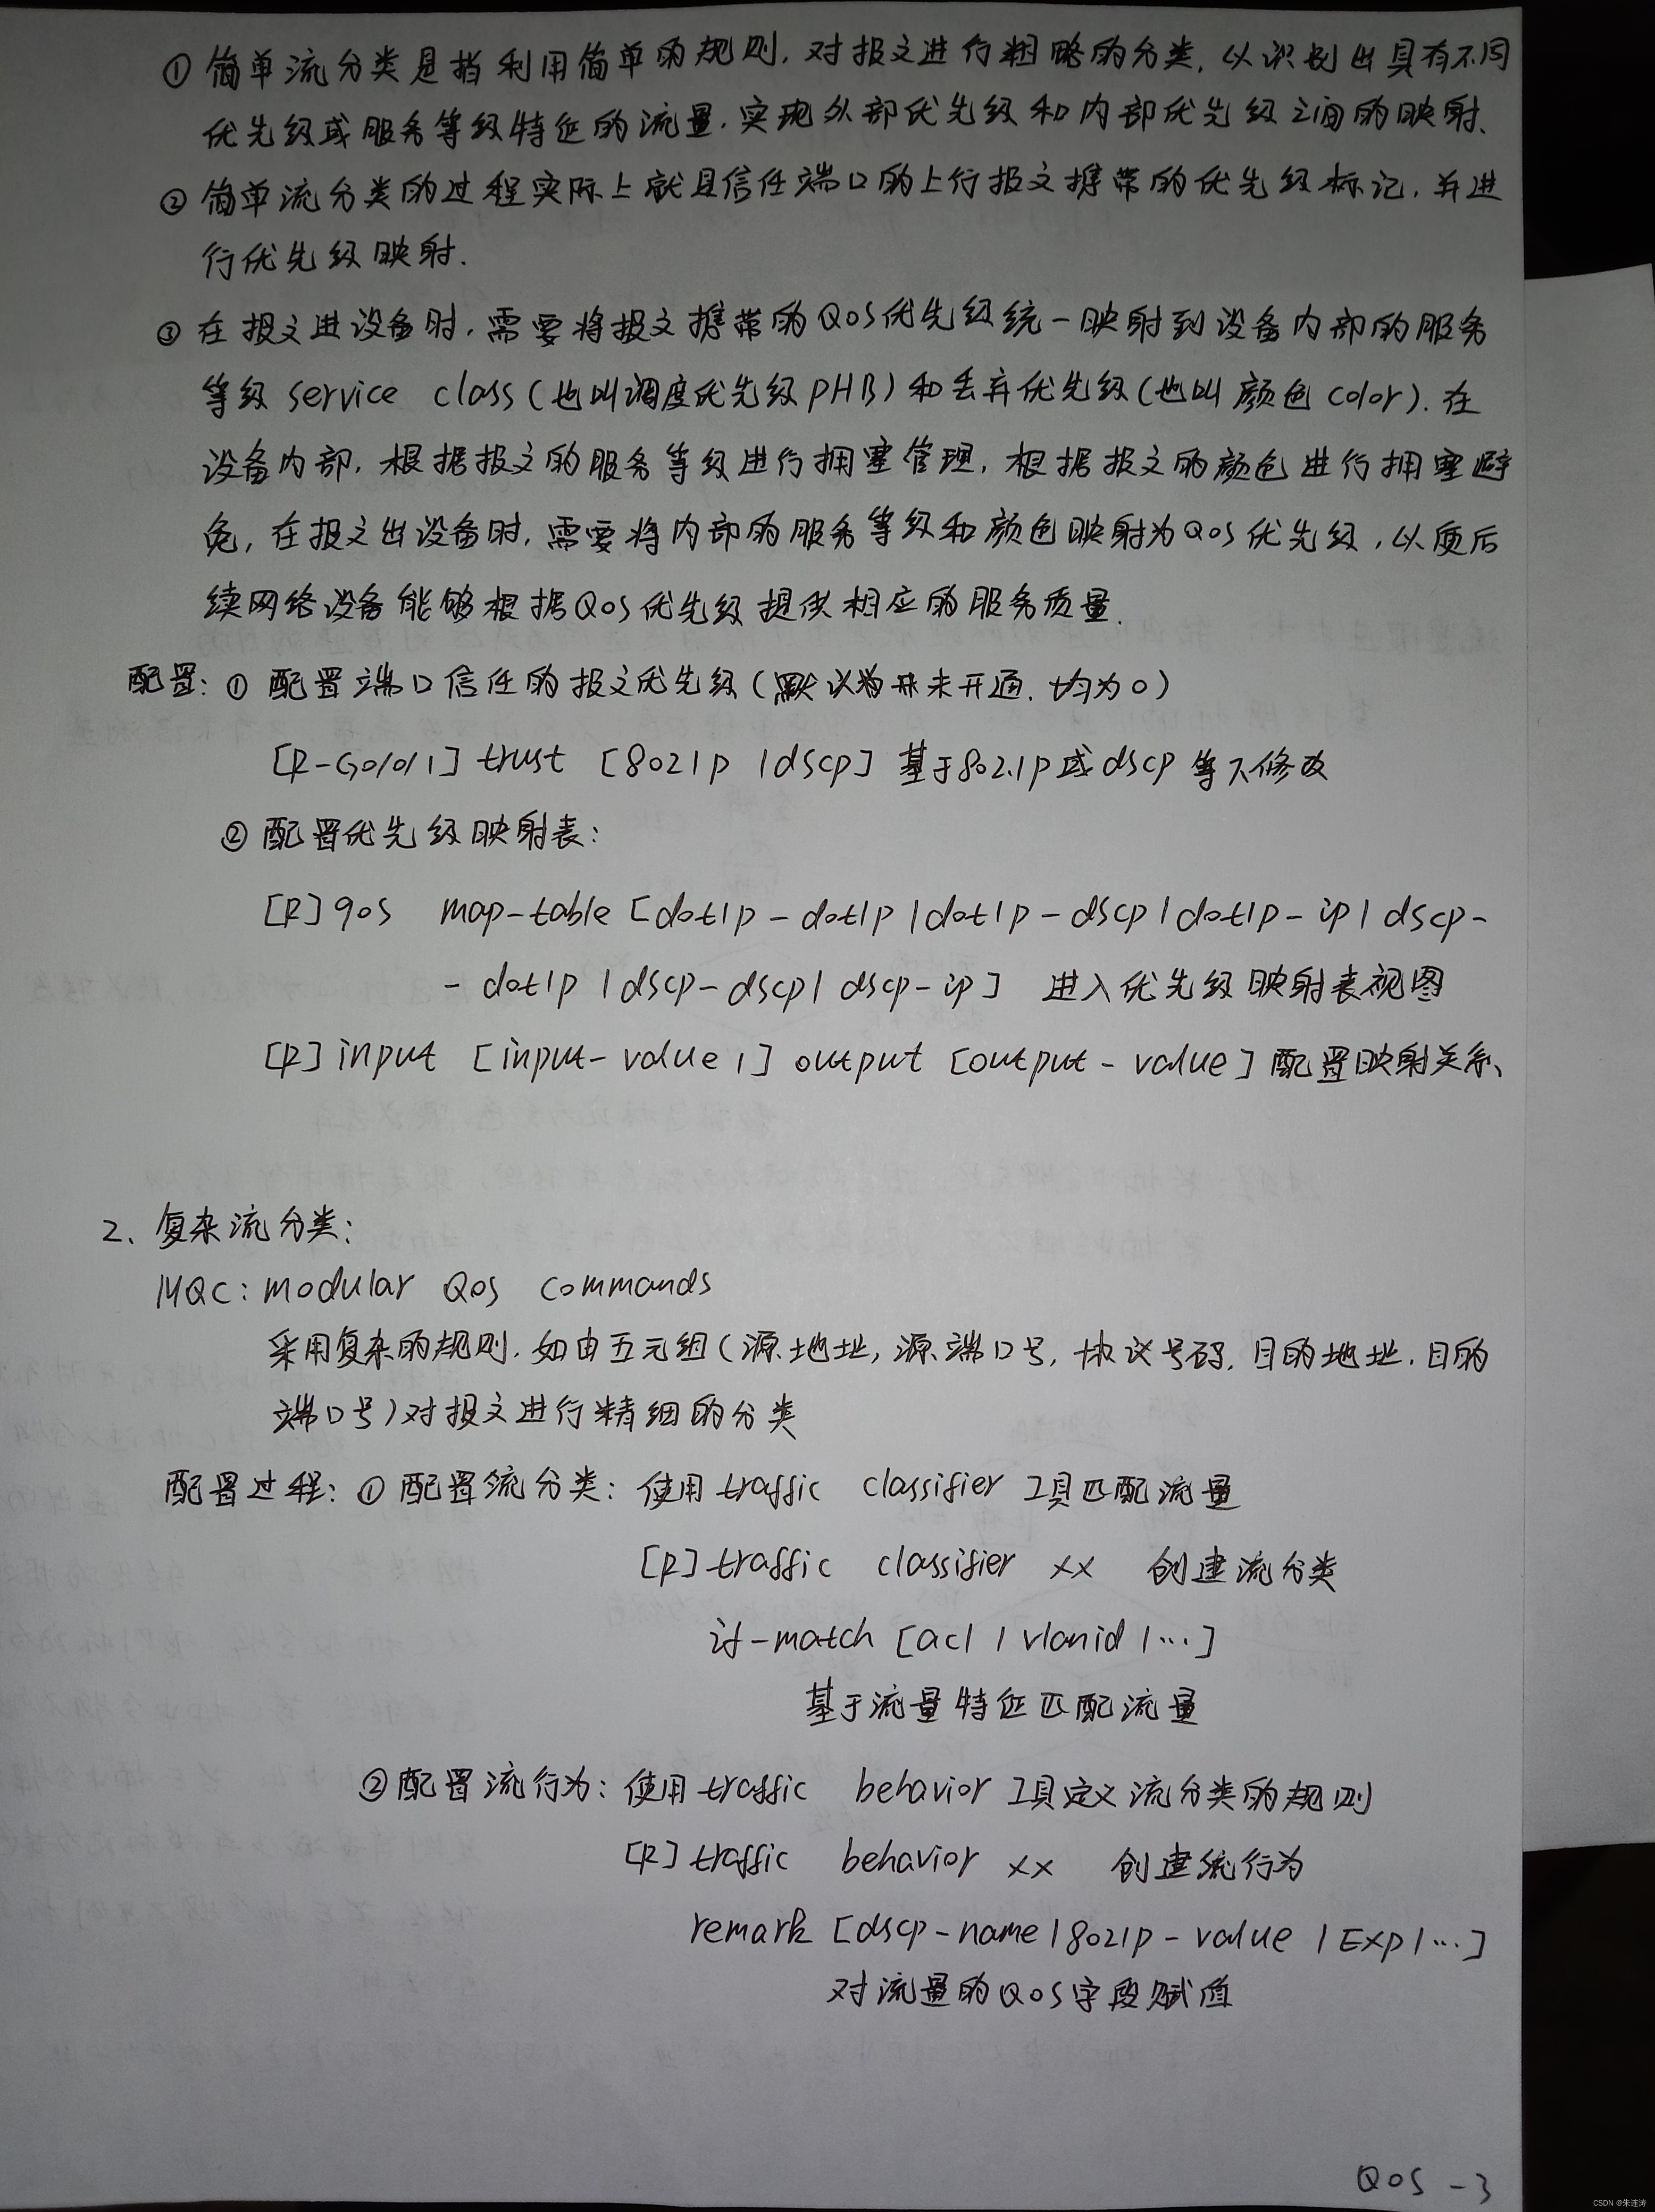 ① 简单流分类是指利用简单的规则，对报文进行粗略的分类，以识别出具有不同
优先级或服务等级特征的流量，实现外部优先级和内部优先级之间的映射、
② 简单流分类的过程实际上就是信任端口的上行报文携带的优先级标记，并进
行优先级映射.
③ 在报文进设备时，需要将报文携带的QoS优先级统一映射到设备内部的服务
等级 service class（也叫调度优先级PHB）和丢弃优先级（也叫颜色color）.在
设备内部，根据报文的服务等级进行拥塞管理，根据报文的颜色进行拥塞避
免，在报文出设备时，需要将内部的服务等级和颜色映射为QoS优先级，以便后
续网络设备能够根据QoS优先级提供相应的服务质量.
配置：① 配置端口信任的报文优先级（默认为并未开通，均为0）
[R-G0/0/1] trust [8021p |dscp] 基于802.1p或dscp等不修改
② 配置优先级映射表：
[R] qos map-table [dot1p-dot1p|dot1p-dscp|dot1p-ip|dscp-
-dot1p|dscp-dscp|dscp-ip] 进入优先级映射表视图
[R] input [input-value1] output [output-value] 配置映射关系、
2、复杂流分类：
MQC：modular QoS commands
采用复杂的规则，如由五元组（源地址，源端口号，协议号码，目的地址，目的
端口号）对报文进行精细的分类
配置过程：① 配置流分类：使用traffic classifier 工具匹配流量
[R] traffic classifier xx 创建流分类
if-match [acl | vlanid |…]
基于流量特征匹配流量
② 配置流行为：使用traffic behavior 工具定义流分类的规则
[R] traffic behavior xx 创建流行为
remark [dscp-name|8021p-value |Exp|…]
对流量的QoS字段赋值
QoS -3
CSDN @朱连涛